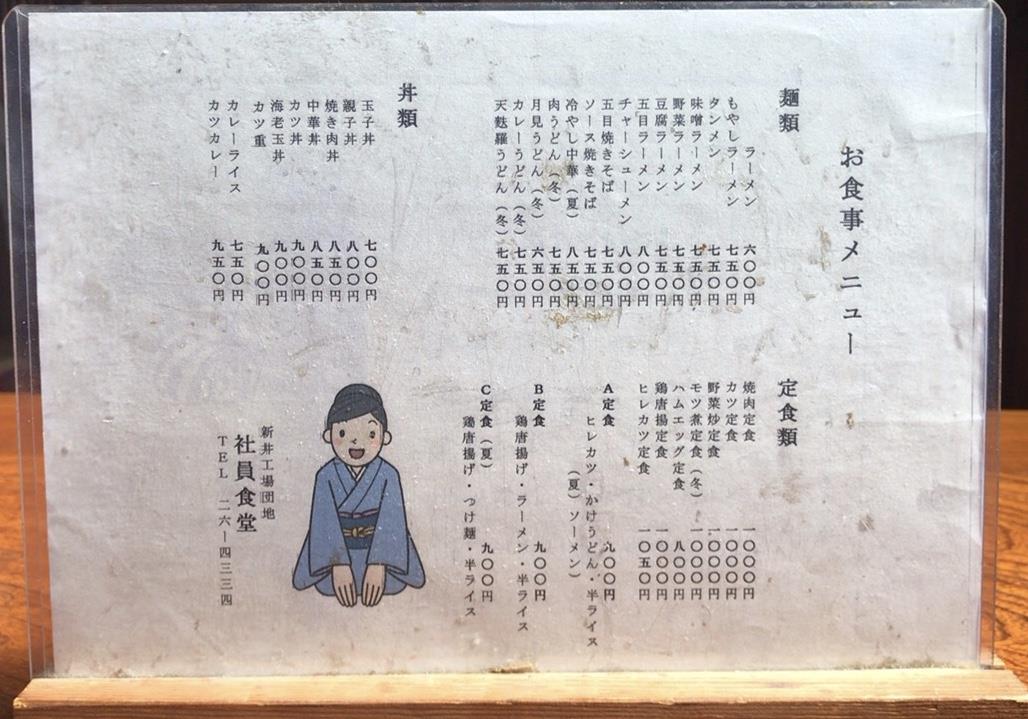 お食事メニュー
麺類
ラーメン 六〇〇円
もやしラーメン 七五〇円
タンメン 七五〇円
味噌ラーメン 七五〇円
野菜ラーメン 七五〇円
豆腐ラーメン 七五〇円
五目ラーメン 八〇〇円
チャーシューメン 八〇〇円
五目焼きそば 七五〇円
ソース焼きそば 七五〇円
冷やし中華(夏) 八五〇円
肉うどん(冬) 七五〇円
月見うどん(冬) 六五〇円
カレーうどん(冬) 七五〇円
天麩羅うどん(冬) 七五〇円
丼類
玉子丼 七〇〇円
親子丼 八〇〇円
焼き肉丼 八五〇円
中華丼 八五〇円
カツ丼 九〇〇円
海老玉丼 九〇〇円
カツ重 九〇〇円
カレーライス 七五〇円
カツカレー 九五〇円
定食類
焼肉定食 一〇〇〇円
カツ定食 一〇〇〇円
野菜炒定食 一〇〇〇円
モツ煮定食(冬) 一〇〇〇円
ハムエッグ定食 八〇〇円
鶏唐揚定食 一〇〇〇円
ヒレカツ定食 一〇五〇円
A定食 九〇〇円
ヒレカツ・かけうどん・半ライス
(夏)ソーメン)
B定食 九〇〇円
鶏唐揚げ・ラーメン・半ライス
C定食(夏) 九〇〇円
鶏唐揚げ・つけ麺・半ライス
新井工場団地
社員食堂
TEL 二六ー四三三四